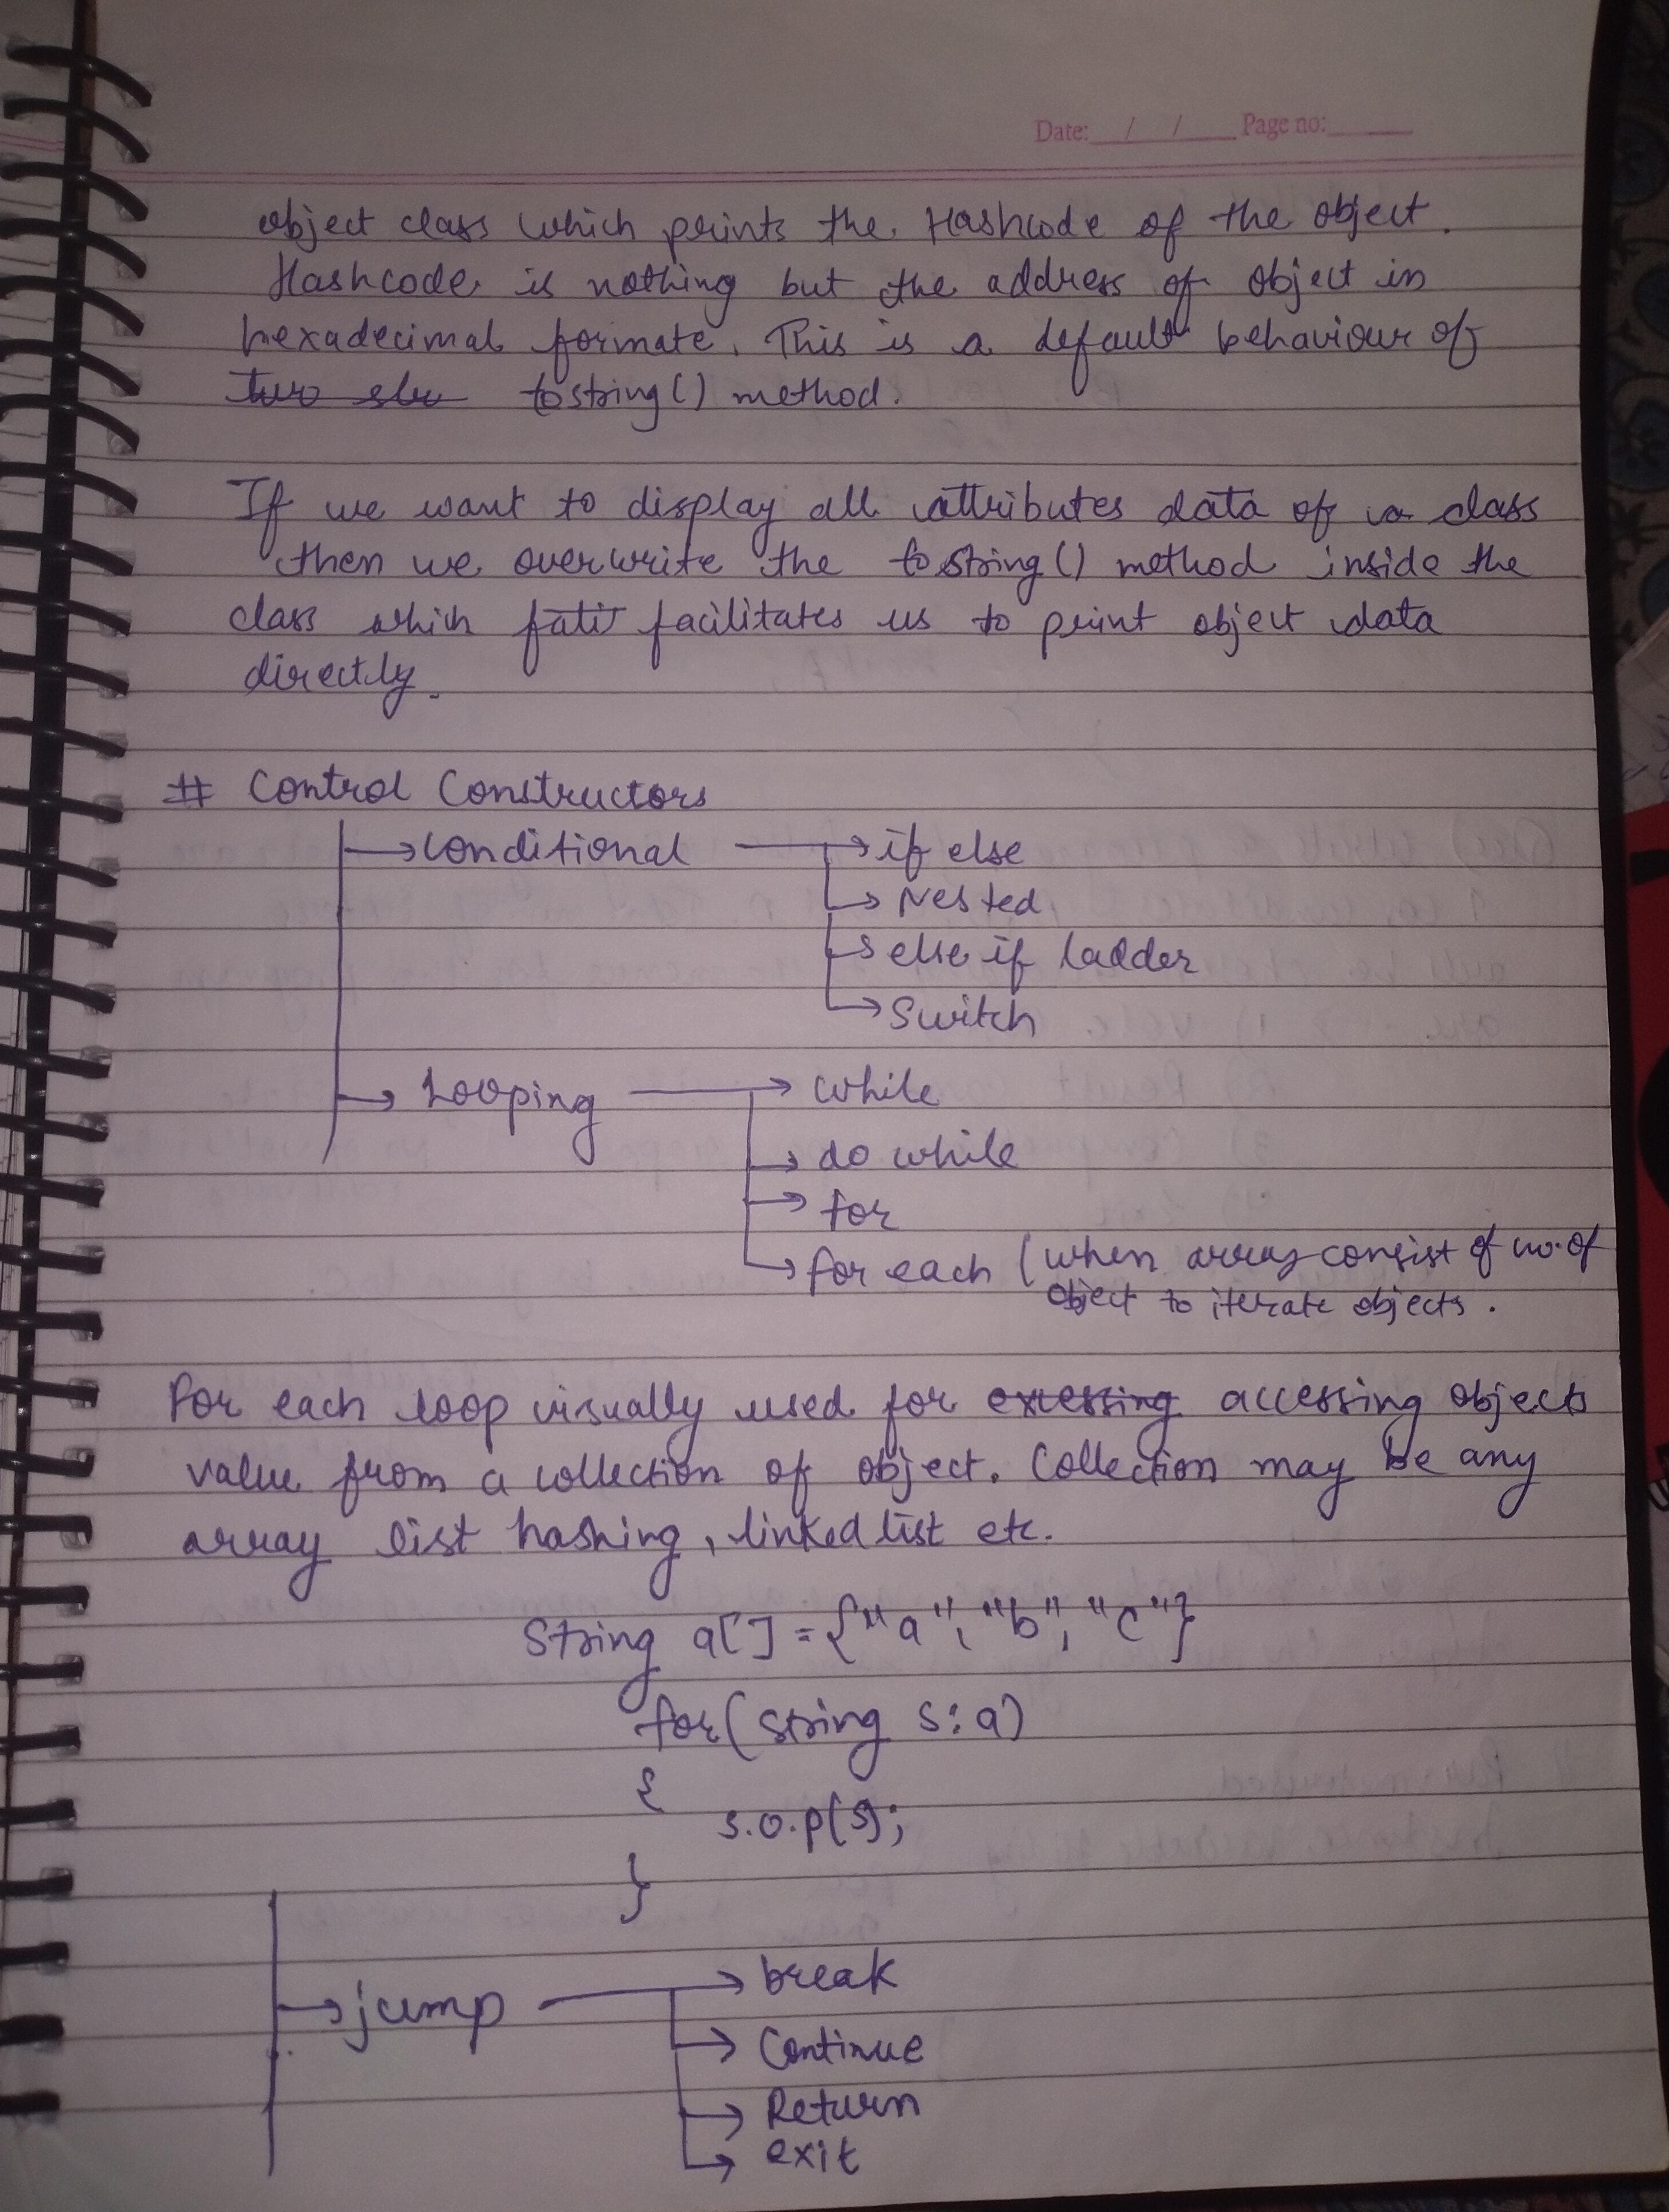 Date: / / Page no:
object class which prints the Hashcode of the object.
Hashcode is nothing but the address of object in
hexadecimal formate. This is a default behaviour of
tostring() method.
If we want to display all attributes data of a class
then we overwrite the tostring() method inside the
class which facilitates us to print object data
directly.
# Control Constructors
→ Conditional → if else
→ Nested
→ else if ladder
→ Switch
→ Looping → while
→ do while
→ for
→ for each (when array consist of no. of
object to iterate objects.
For each loop visually used for accessing objects
value from a collection of object. Collection may be any
array list hashing, linked list etc.
String a[] = {"a", "b", "c"}
for(string s:a)
{
s.o.p(s);
}
→ jump → break
→ Continue
→ Return
→ exit